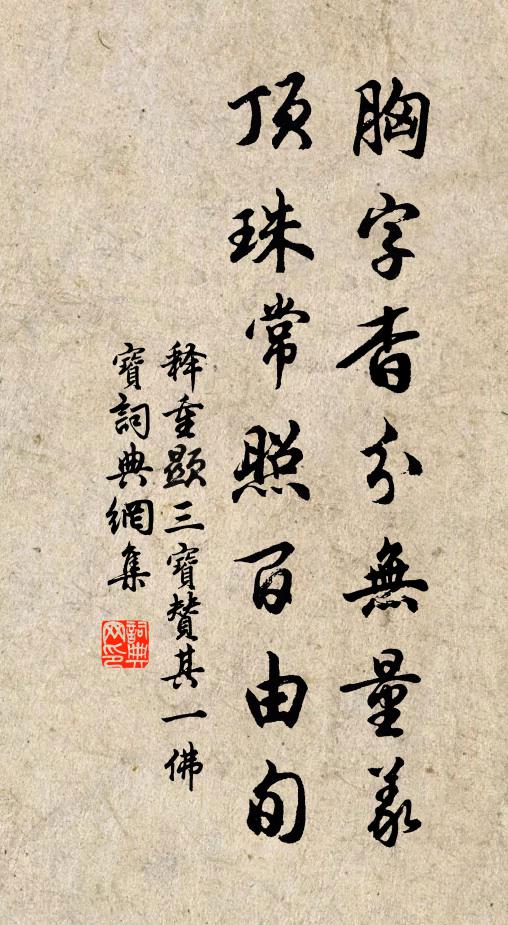 胸字杳分無量義
頂珠常照百由旬
釋重顯三寶贊其一佛
寶詞典網集
詞典
网印